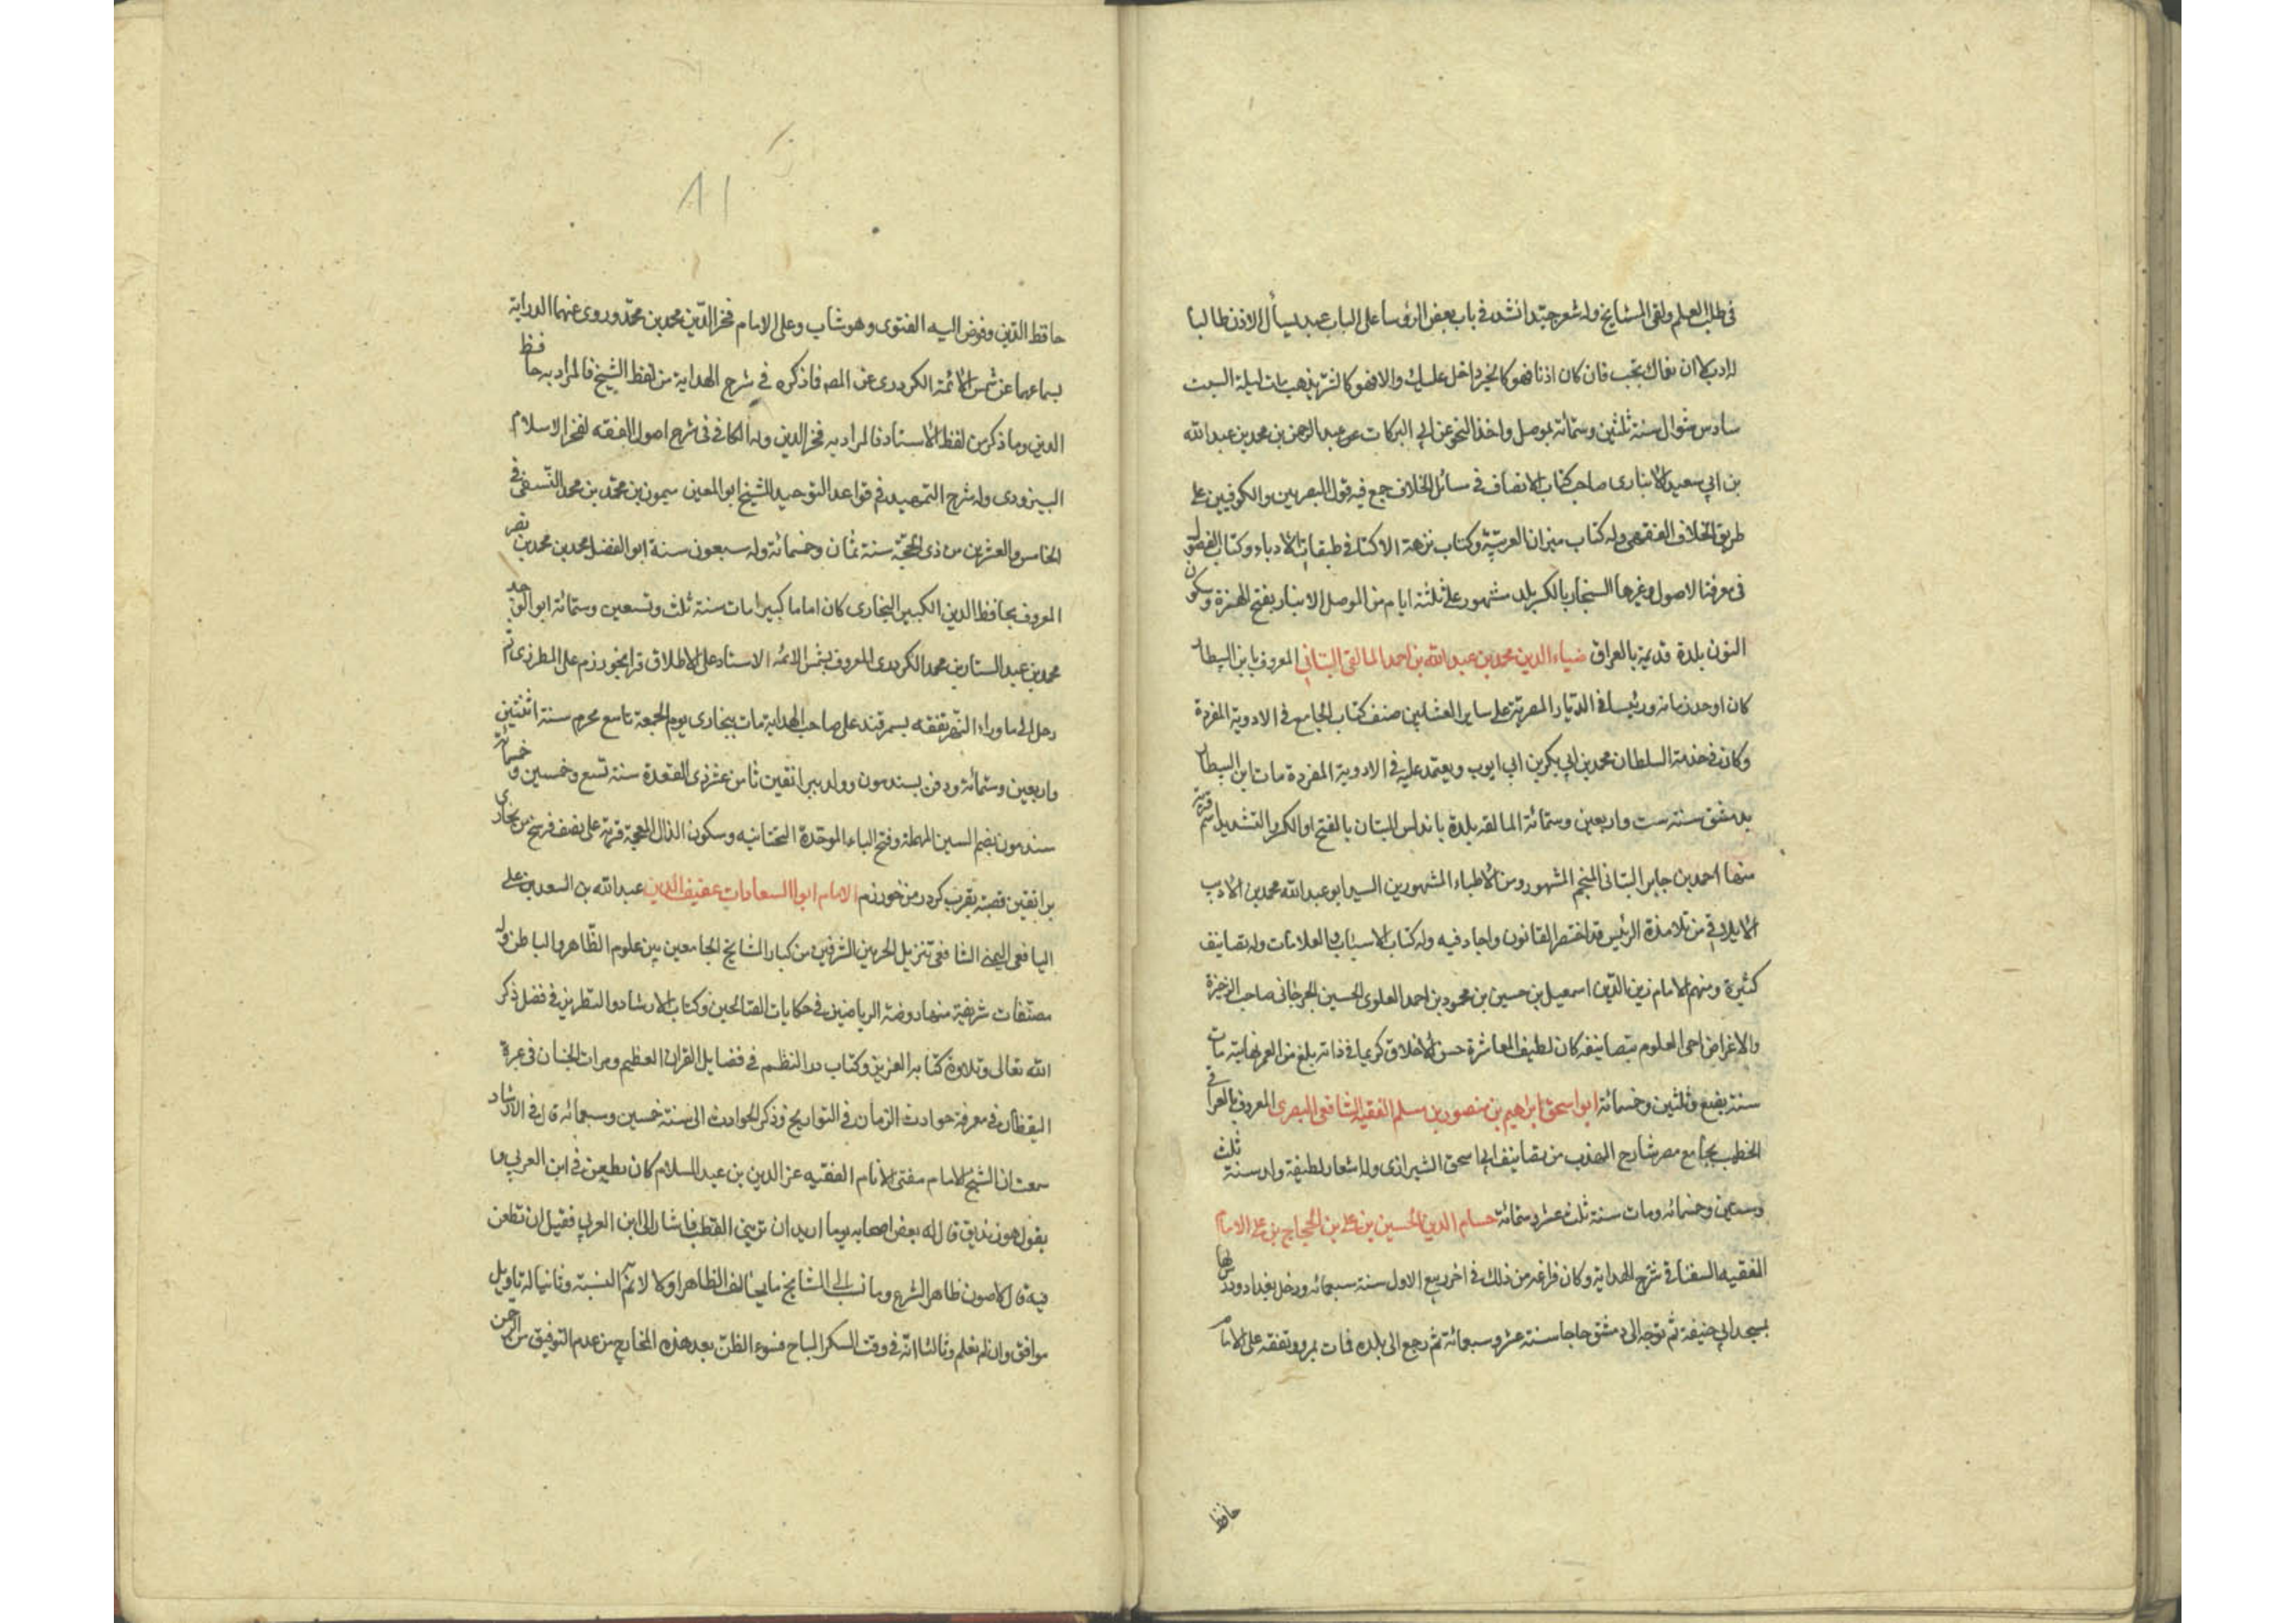 في طلب العلم ولقي المشايخ وله شعر جيد انشد في باب بعض الرؤسا على الباب عبد يسأل الاذن طالبا
ان نفاك يحب فان كان اذنا فهو كالخير داخل عليك والا فهو كالشر يذهب مات ليلة السبت
سادس شوال سنة ثلثين وستمائة بموصل واخذ النحو عن ابي البركات عبد الرحمن بن محمد بن عبد الله
بن ابي سعيد الانباري صاحب كتاب الانصاف في مسائل الخلاف جمع فيه قول البصريين والكوفيين على
طريق الخلاف الفقهي وله كتاب ميزان العربية وكتاب نزهة الالبا في طبقات الادباء وكتاب الفصول
في معرفة الاصول وغيرها السنجار بالكسر بلد مشهور على ثلثة ايام من الموصل الانبار بفتح الهمزة وسكون
النون بلدة قديمة بالعراق ضياء الدين محمد بن عبد الله بن احمد المالقي البتاني المعروف بابن البيطار
كان اوحد زمانه ورئيسا في الديار المصرية على ساير العشابين صنف كتاب الجامع في الادوية المفردة
وكان في خدمة السلطان محمد بن ابي بكر بن ابي ايوب ويعتمد عليه في الادوية المفردة مات ابن البيطار
بدمشق سنة ست واربعين وستمائة المالقه بلدة باندلس البتان بالفتح او الكسر والتشديد اسم قرية
منها احمد بن جابر البتاني المنجم المشهور ومن الاطباء المشهورين السيد ابو عبد الله محمد بن الاديب
الايلاقي من تلامذة الرئيس قد اختصر القانون واجاد فيه وله كتاب الاسباب والعلامات وله تصانيف
كثيرة ومنهم الامام زين الدين اسمعيل بن حسين بن محمود بن احمد العلوي الحسين الجرجاني صاحب الذخيرة
والاغراض احى العلوم بتصانيفه كان لطيف المعاشرة حسن الاخلاق كريما في ذاته بلغ من العمر نهايته مات
سنة بضع وثلثين وخمسائة ابو اسحق ابراهيم بن منصور بن مسلم الفقيه الشافعي المصري المعروف بالعراقي
الخطيب بجامع مصر شارح المهذب من تصانيف ابي اسحق الشيرازي وله اشعار لطيفة ولد سنة ثلث
وسبعين وخمسائه ومات سنة ثلث عشر وستمائة حسام الدين الحسين بن علي بن الحجاج بن علي الامام
الفقيه السغناقي شرح الهداية وكان فراغه من ذلك في اخر ربيع الاول سنة سبعمائه ودخل بغداد ودرس بها
بمسجد ابي حنيفة ثم توجه الى دمشق حاجا سنة عشر وسبعمائة ثم رجع الى بلده فمات بمرو وتفقه على الامام
حافظ
٨١
حافظ الدين وفوض اليه الفتوى وهو شاب وعلى الامام فخر الدين محمد بن محمد وروى عنهما الدراية
بسماعهما عن شمس الائمة الكردري عن المصـ فما ذكره في شرح الهداية من لفظ الشيخ فالمراد به حافظ
الدين وما ذكر من لفظ الاستاد فالمراد به فخر الدين وله الكافي في شرح اصول الفقه لفخر الاسلام
البزودي وله شرح التمهيد في قواعد التوحيد للشيخ ابو المعين ميمون بن محمد بن محمد النسفي في
الخامس والعشرين من ذي الحجة سنة ثمان وخمسائة وله سبعون سنة ابو الفضل محمد بن محمد بن نصر
المعروف بحافظ الدين الكبير البخاري كان اماما كبيرا مات سنة ثلث وتسعين وستمائة ابو الوجد
محمد بن عبد الستار بن محمد الكردري المعروف بشمس الائمه الاستاد على الاطلاق قرا بخوارزم على المطرزي ثم
رحل الى ما وراء النهر تفقه بسمرقند على صاحب الهداية مات ببخارى يوم الجمعة تاسع محرم سنة اثنتين
واربعين وستمائة ودفن بسبذمون وولد ببراتقين ثامن عشر ذي القعدة سنة تسع وخمسين وخمسمائة
سبذمون بضم السين المهملة وفتح الباء الموحدة التحتانيه وسكون الذال المعجمة قرية على نصف فرسخ من بخارى
براتقين قصبة بقرب كردر من خوارزم الامام ابو السعادات عفيف الدين عبد الله بن السعد بن علي
اليافعي اليمني الشافعي نزيل الحرمين الشرفين من كبار المشايخ الجامعين بين علوم الظاهر والباطن وله
مصنفات شريفة منها روضة الرياحين في حكايات الصالحين وكتاب الارشاد والتطريز في فضل ذكر
الله تعالى وتلاوة كتابه العزيز وكتاب در النظم في فضايل القران العظيم ومرات الجنان في عبرة
اليقظان في معرفة حوادث الزمان في التواريخ وذكر الحوادث الى سنة خمسين وسبعمائه قال في الارشاد
سمعت ان الشيخ الامام مفتى الانام الفقيه عز الدين بن عبد السلام كان يطعن في ابن العربي وا
يقول هو زنديق قال له بعض اصحابه يوما اريد ان تريني القطب فاشار الى ابن العربي فقيل ان تطعن
فيه قال لاصون ظاهر الشرع وما نسب الى المشايخ ما يخالف الظاهر اولا لا نم النسبة وثانيا له تاويل
موافق وان لم نعلم وثالثا انه في وقت السكر المباح فسوء الظن بعد هذه المخارج من عدم التوفيق من الرحمن